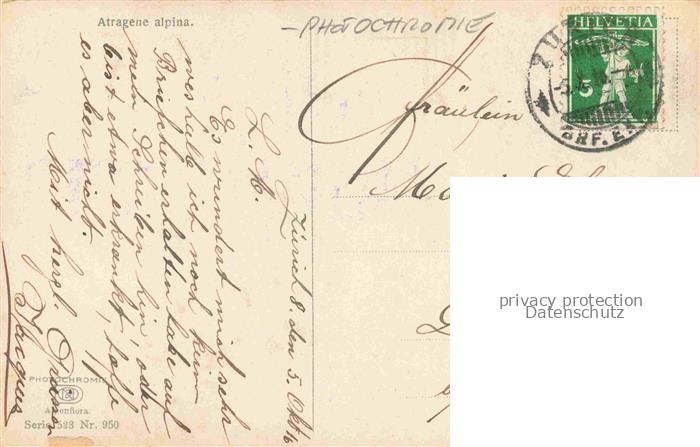 Atragene alpina.
- PHOTOCHROMIE
HELVETIA
5
BRF. E.
Fräulein
Zürich 8. den 5. Okt. 16
L. M.
Es wundert mich sehr
weshalb ich noch kein
Briefchen erhalten habe auf
mein Schreiben hin, oder
bist etwa erkrankt, hoffe
es aber nicht.
Mit herzl. Grüssen
Jacques
PHOTOCHROMIE
Alpenflora.
Serie 523 Nr. 950
privacy protection
Datenschutz